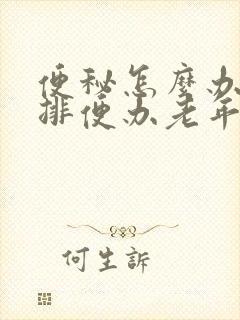 便秘怎麼办
排便办老年
何生訴